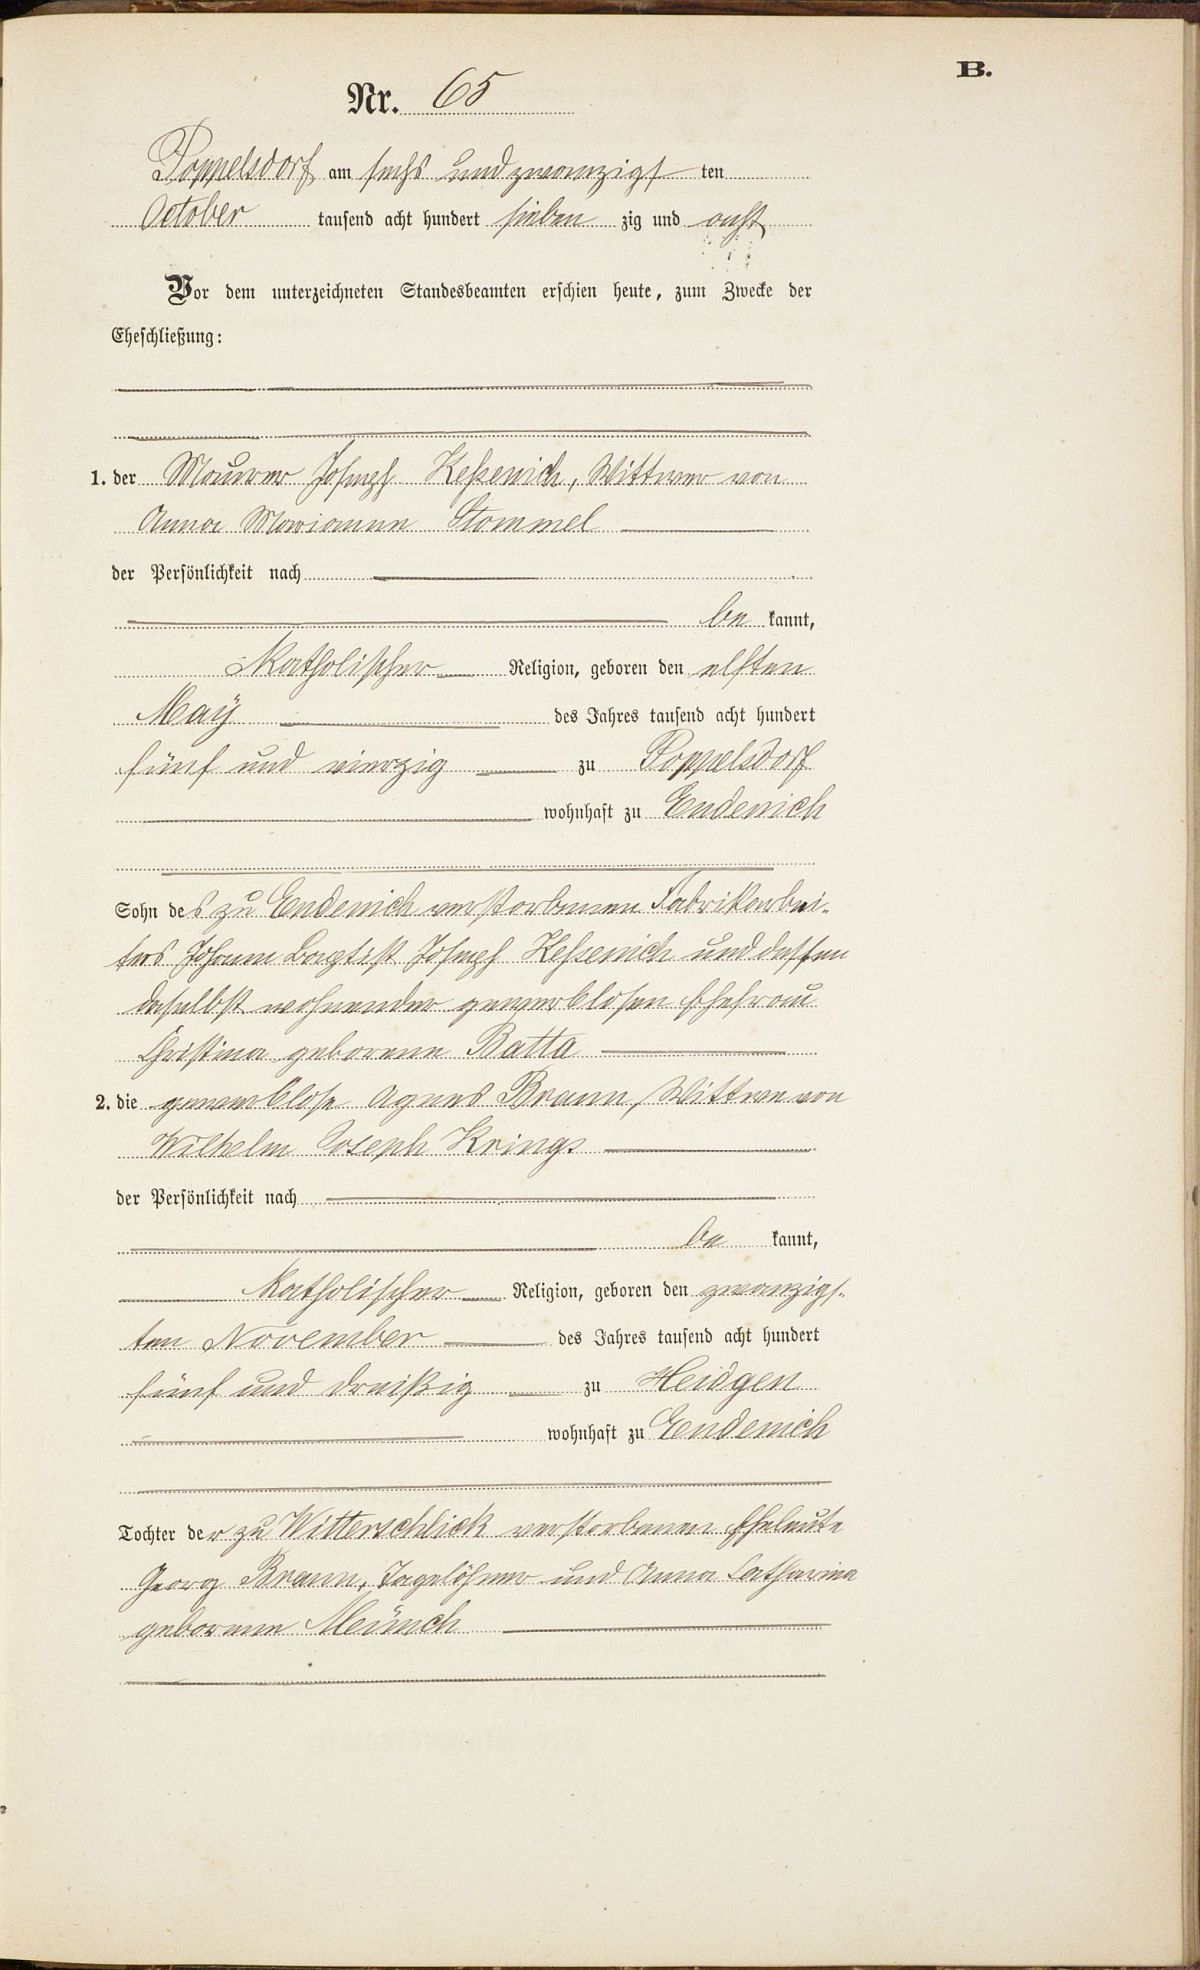 B.
Nr. 65
Poppelsdorf am sechs und zwanzigs ten
October tausend acht hundert sieben zig und acht
Vor dem unterzeichneten Standesbeamten erschien heute, zum Zwecke der
Eheschließung:
1. der Maurer Joseph Keßenich, Wittwer von
Anna Mariann Stommel
der Persönlichkeit nach
be kannt,
Katholischer Religion, geboren den elften
May des Jahres tausend acht hundert
fünf und vierzig zu Poppelsdorf
wohnhaft zu Endenich
Sohn des zu Endenich verstorbenen Fabrikarbei-
ters Johann Baptist Joseph Keßenich und dessen
daselbst wohnender gewerblosen Ehefrau
Christina geborene Batta
2. die gewerblose Agnes Braun, Wittwe von
Wilhelm Joseph Krings
der Persönlichkeit nach
be kannt,
Katholischer Religion, geboren den zwanzigs-
ten November des Jahres tausend acht hundert
fünf und dreißig zu Heidgen
wohnhaft zu Endenich
Tochter der zu Witterschlick verstorbenen Eheleute
Georg Braun, Tagelöhner und Anna Catharina
geborene Meünch